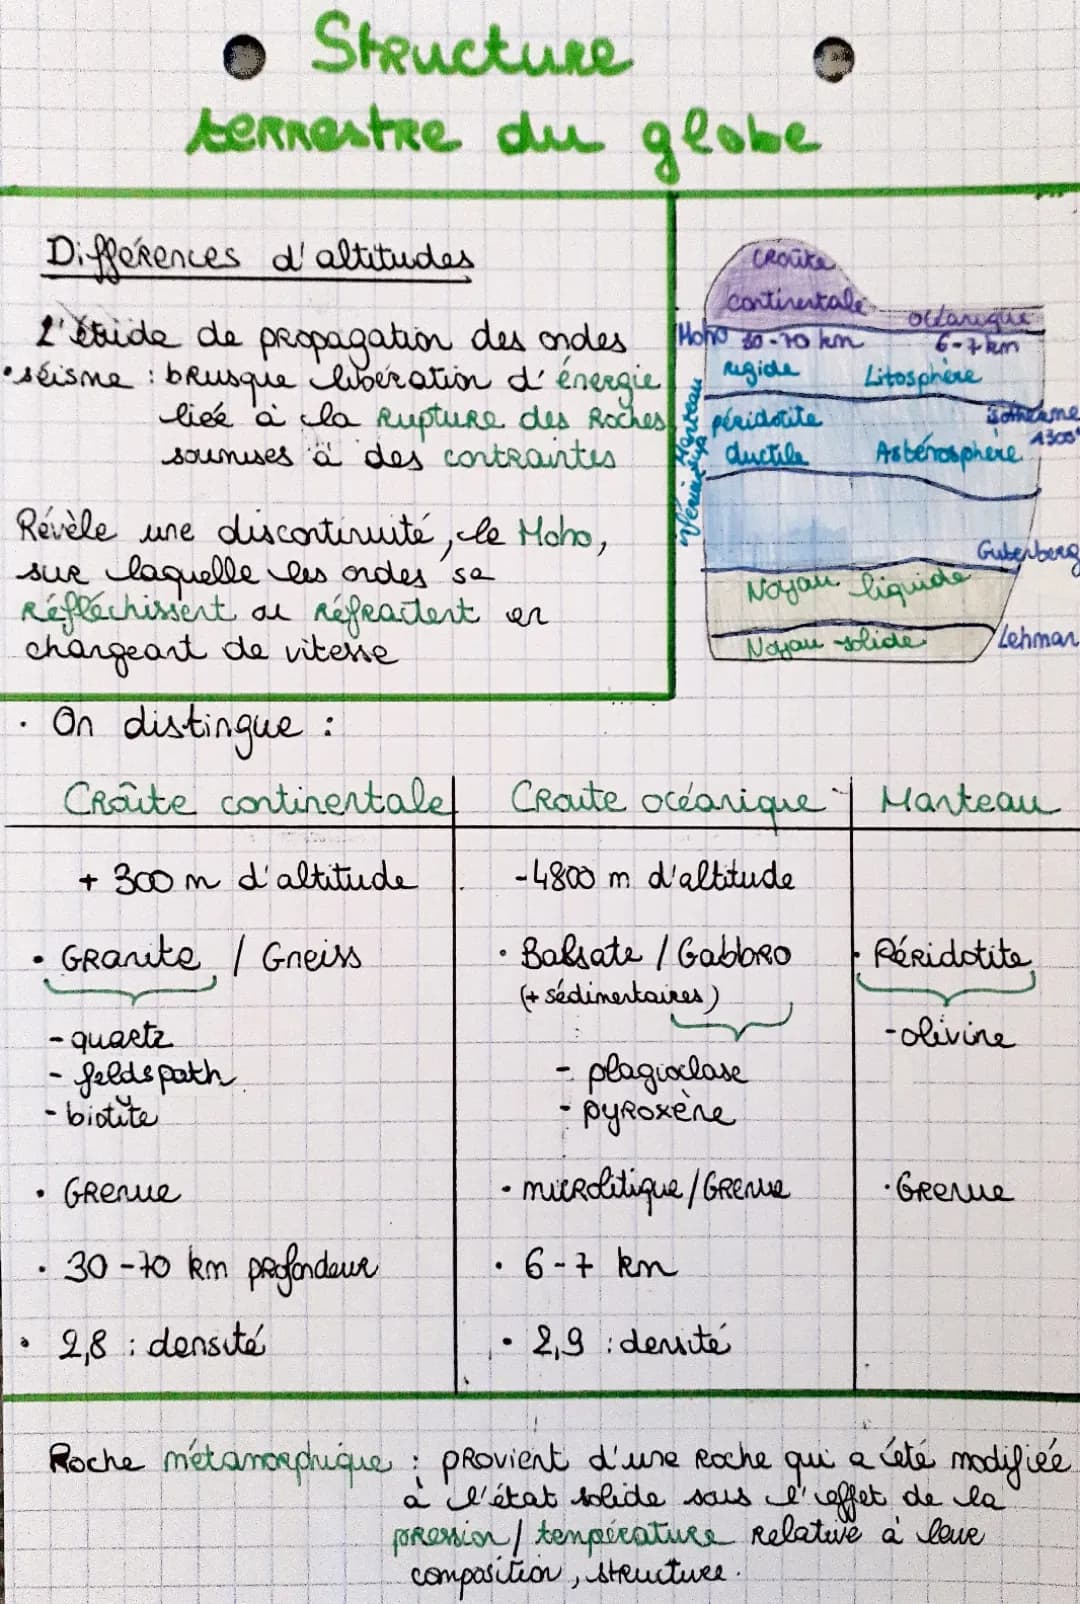 Structure
terrestre du globe
Différences d'altitudes
L'étude de propagation des ondes
• séisme : brusque libération d'énergie
liée à la rupture des roches
soumises à des contraintes
Révèle une discontinuité, le Moho,
sur laquelle les ondes se
réfléchissent ou réfractent en
changeant de vitesse
croûte
continentale
océanique
Moho 30-70 km
6-7 km
rigide
Litosphère
péridotite
isotherme
1300°
ductile
Asténosphère
Manteau
inférieur
Gutenberg
Noyau liquide
Lehman
Noyau solide
• On distingue :
Croûte continentale Croute océanique Manteau
+ 300 m d'altitude -4800 m d'altitude
• Granite / Gneiss • Balsate / Gabbro • Péridotite
(+ sédimentaires)
- quartz - olivine
- feldspath - plagioclase
- biotite - pyroxène
• Grenue • microlitique / Grenue • Grenue
• 30-70 km profondeur • 6-7 km
• 2,8 : densité • 2,9 : densité
Roche métamorphique : provient d'une roche qui a été modifiée
à l'état solide sous l'effet de la
pression / température relative à leur
composition, structure.